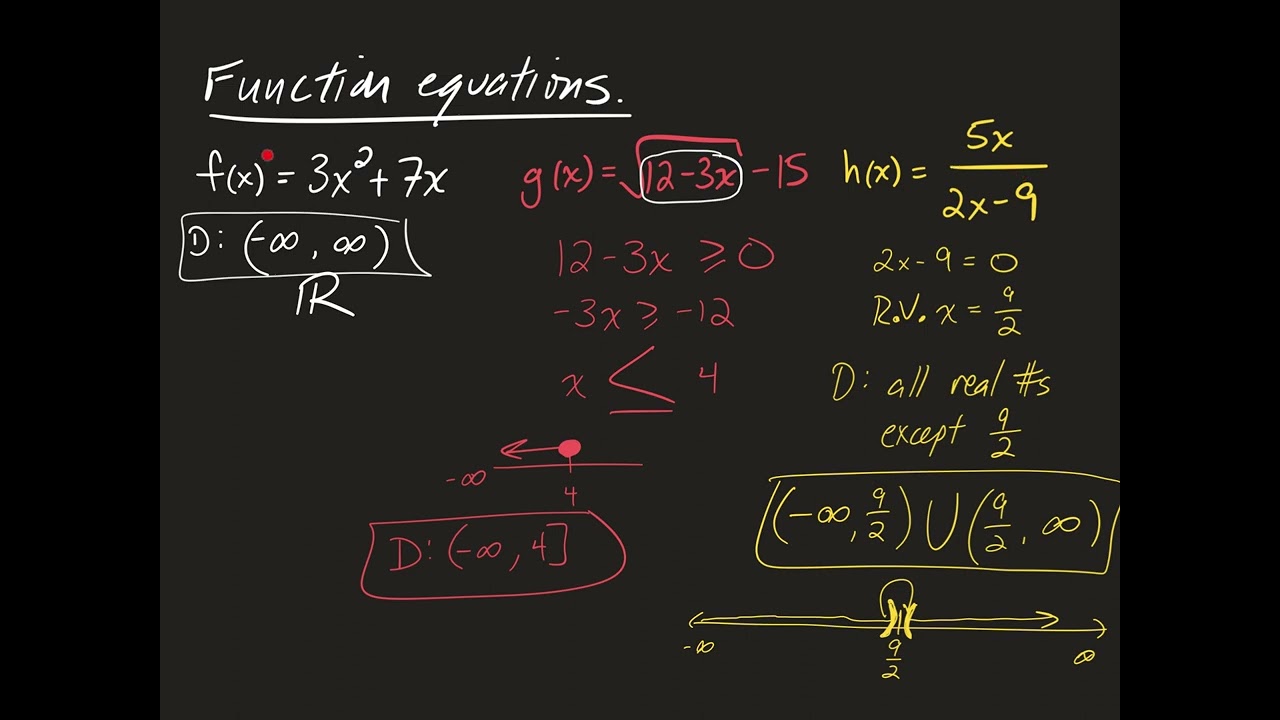 Function equations.
f(x) = 3x² + 7x
D: (-∞, ∞)
ℝ
g(x) = √(12-3x) - 15
12-3x ≥ 0
-3x ≥ -12
x ≤ 4
-∞ 4
D: (-∞, 4]
h(x) = 5x/(2x-9)
2x-9 = 0
R.V. x = 9/2
D: all real #s
except 9/2
(-∞, 9/2) ∪ (9/2, ∞)
-∞ )( ∞
9/2